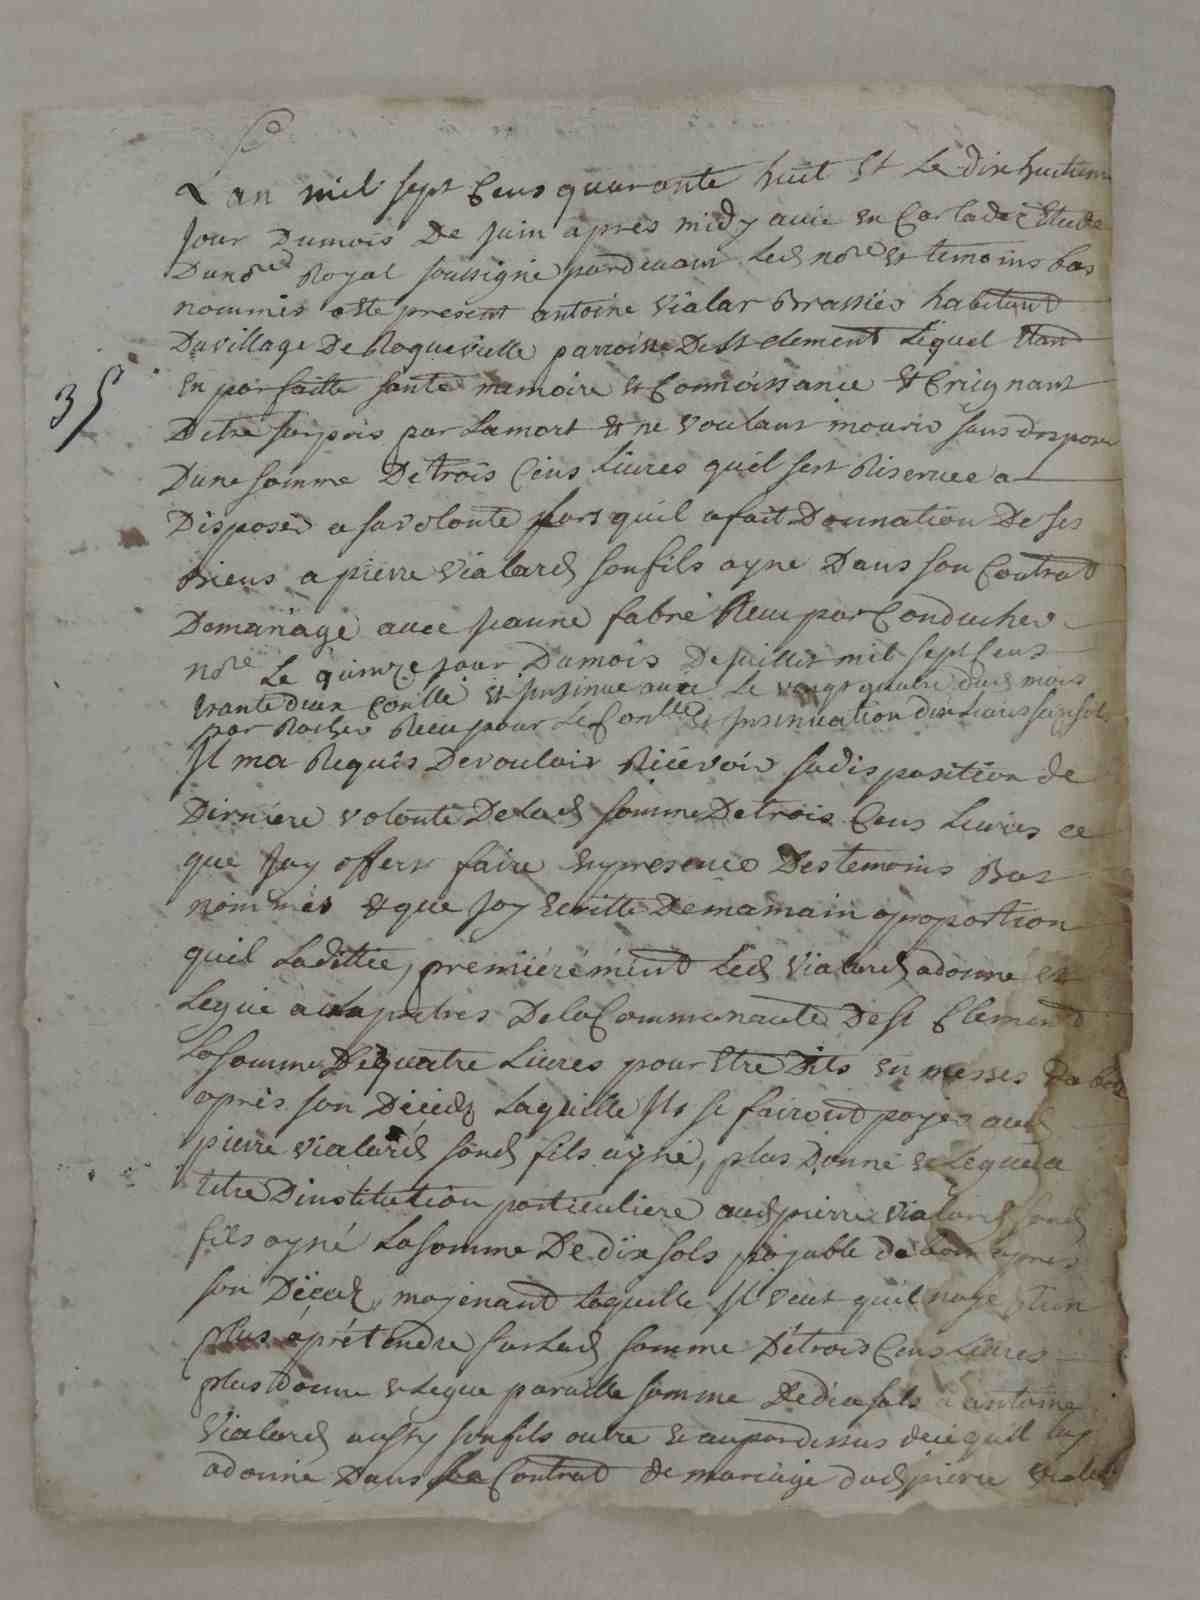 Lan mil sept Cens quarante huit Et Le dix huitieme
Jour Dumois De Juin apres midy a vic en Carladez Etude
Du nore Royal soussigné pardevant Led nore et temoins bas
nommés este present antoine Vialar Brassies habitant
Du village De Roquevielle parroisse De St clement Lequel Etant
En parfaitte santé memoire et Connoissance et Creignant
35
Detre surpris par La mort et ne voulant mourir sans disposer
Dune somme De trois Cens Livres quil sest Riservee a
Disposer a sa volonté lors quil a fait Donnation De ses
Biens a pierre Vialard son fils ayne Dans son Contrat
De mariage avec Jeanne fabre Receu par Conducher
nore Le quinze jour Dumois De juillet mil sept Cens
trante deux Conllé et Insinué au Le vingt quatre dud mois
par Rocher Receu pour Le Conlle et Insinuation dix Livres six sols
Il ma Requis De vouloir Ricevoir sa disposition de
Dirniere volonté De Lad somme De trois Cens Livres ce
que Jay offert faire En presence Des temoins Bas
nommés et que Jay Ecritte De ma main a proportion
quil La dittée, premiérement Led Vialard a donné et
Legué aux pretres De la Communauté De St Clement
La somme De quatre Livres pour Etre Dits en messes
apres son Décéd Laquelle Ils se fairont payer aud
pierre Vialard sond fils ayné, plus Donné et Legué a
titre Dinstitution particuliere aud pierre Vialard sond
fils ayné La somme De dix sols payable dabord apres
son Décéd, moyenant Laquelle Il veut quil naye rien
plus a prétendre sur Lad somme De trois Cens Livres
plus Donne et Legue pareille somme De dix sols a antoine
Vialard aussy son fils outre et au par dessus de ce quil luy
a donné Dans Le Contrat de mariage dud pierre Vialard